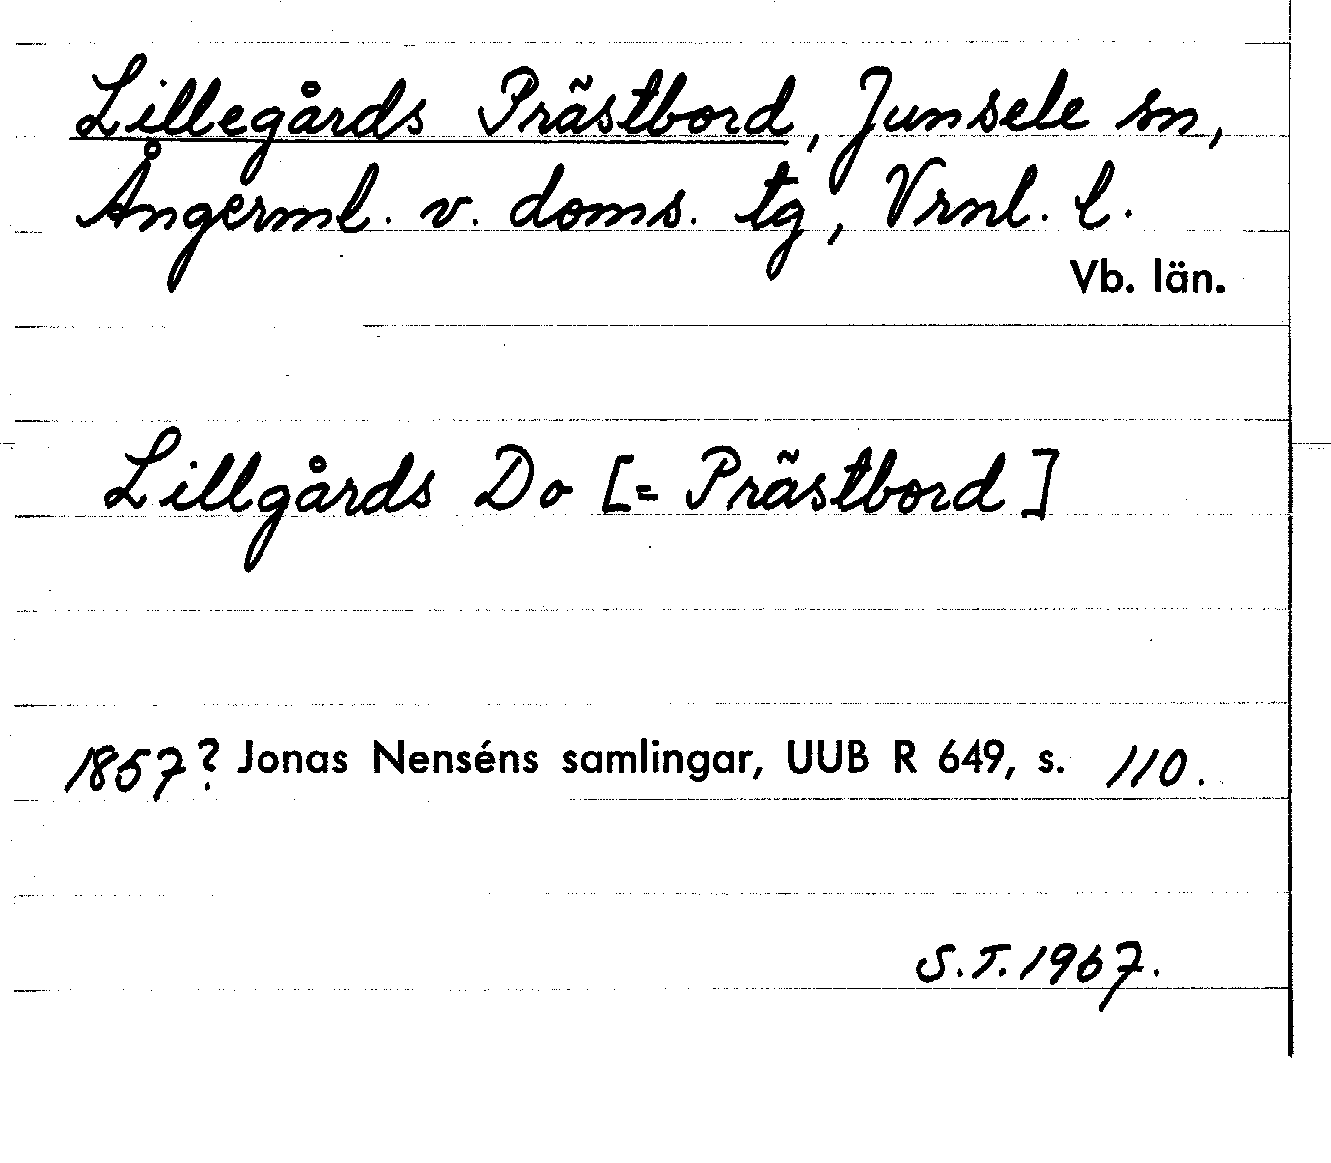 Lillegårds Prästbord, Junsele sn,
Ångerml. v. doms. tg, Vrnl. l.
Vb. län.
Lillgårds Do [= Prästbord]
1857? Jonas Nenséns samlingar, UUB R 649, s. 110.
S.T. 1967.